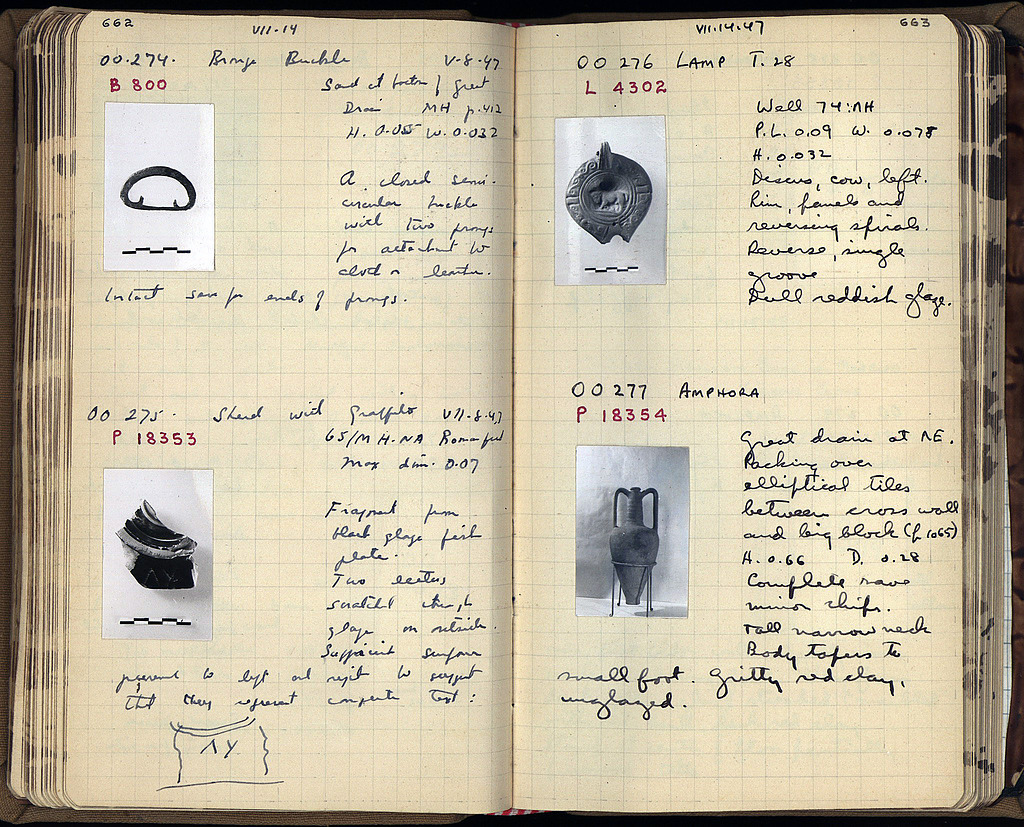 662
VII-14
OO·274. Bronze Buckle V-8-47
B 800
Sand at bottom of Great
Drain MH p.412
H. 0.055 W. 0.032
A closed semi-
circular buckle
with two prongs
for attachment to
cloth or leather.
Intact save for ends of prongs.
OO 275. Sherd with Graffito VII-8-47
P 18353
65/MH-NA Roman fill
Max dim. 0.07
Fragment from
black glaze fish
plate.
Two letters
scratched through
glaze on outside.
Sufficient surface
preserved to left and right to suggest
that they represent complete text:
ΛΥ
VII.14.47
663
OO 276 LAMP T. 28
L 4302
Well 74:NH
P.L. 0.09 W. 0.078
H. 0.032
Discus, cow, left.
Rim, panels and
reversing spirals.
Reverse, single
groove
Dull reddish glaze.
OO 277 AMPHORA
P 18354
Great drain at NE.
Packing over
elliptical tiles
between cross wall
and big block (p. 1065)
H. 0.66 D. 0.28
Complete save
minor chips.
Tall narrow neck
Body tapers to
small foot. Gritty red clay,
unglazed.